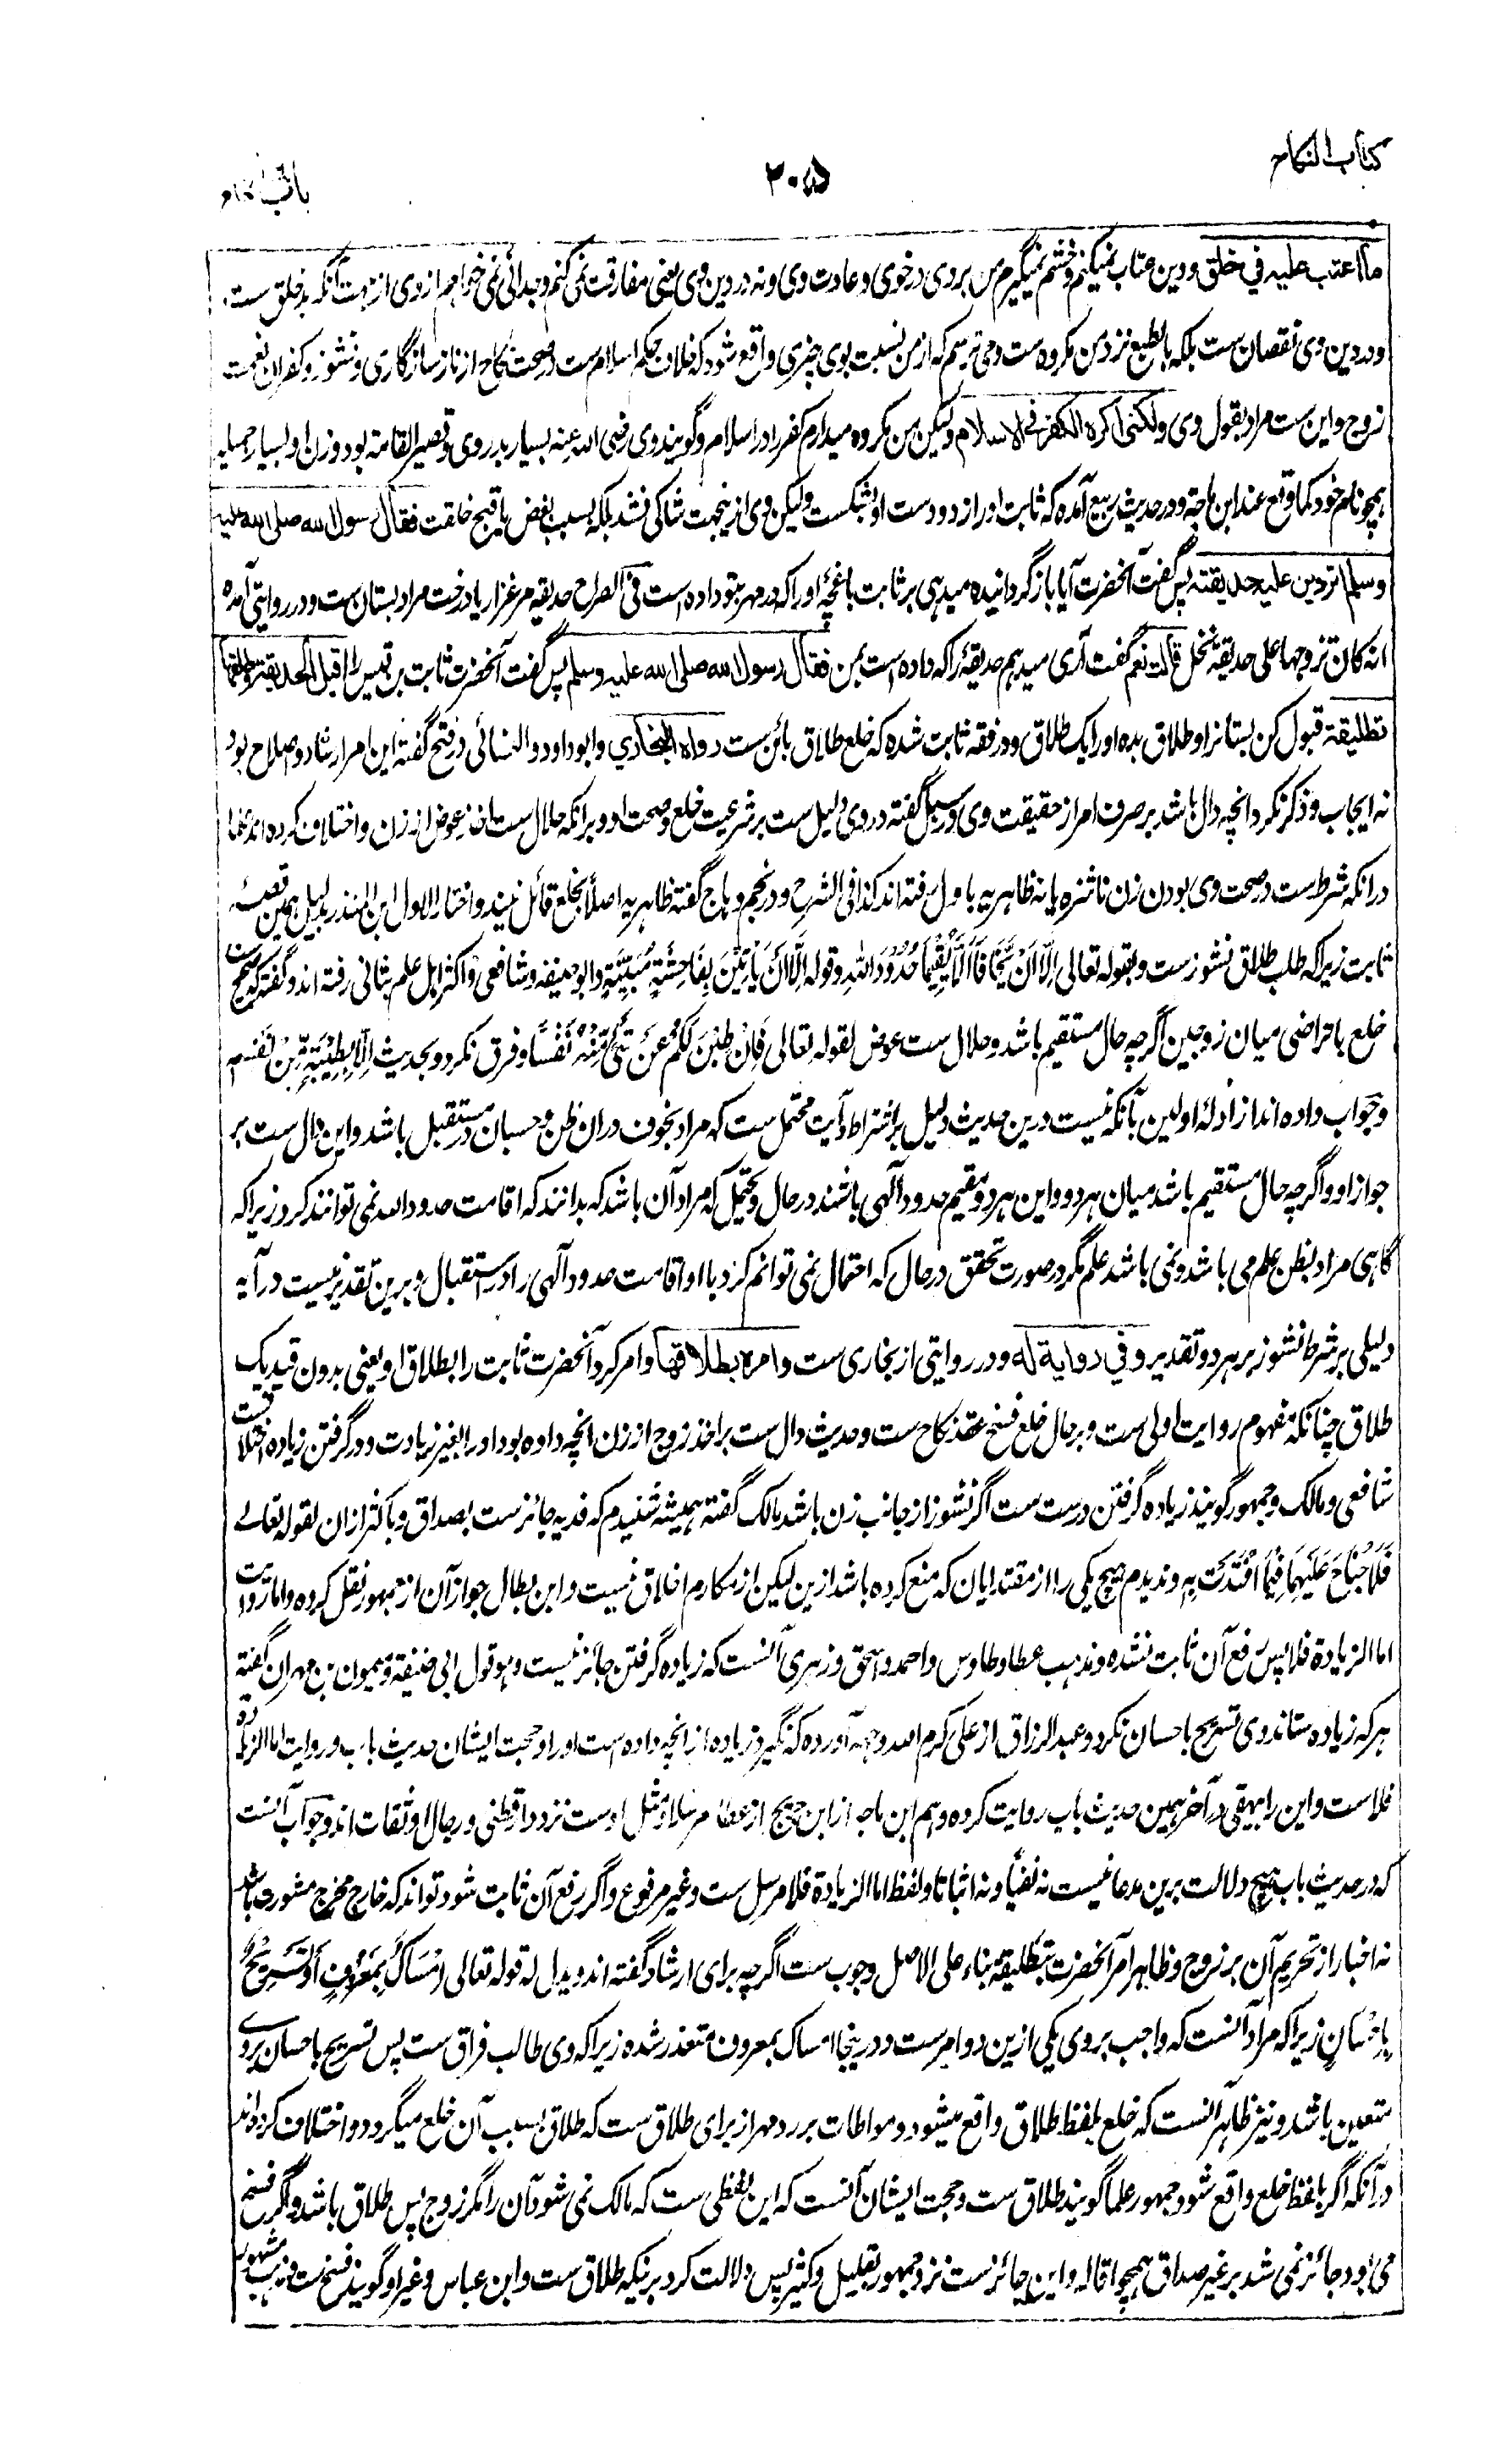 کتاب النکاح
۳۰۵
باب الخلع
ما اعتب علیه فی خلق ودین عتاب نمیکنم وخشم نمیگیرم من بروی درخوی وعادت وی ونه در دین وی یعنی مفارقت نمی کنم وجدائی نمی خواهم ازوی از جهت آنکه بدخلق ست
ودردین وی نقصان ست بلکه بالطبع نزد من مکروه ست ومی ترسم که از من نسبت بوی چیزی واقع شود که خلاف حکم اسلام ست در صحت نکاح از ناسازگاری ونشوز وکفران نعمت
زوج واین ست مراد بقول وی ولکنی اکره الکفر فی الاسلام ولیکن من مکروه میدارم کفر را در اسلام وگویند وی رضی الله عنه بسیار بدروی وقصیر القامة بود وزن او بسیار جمیله
همچو نام خود کما وقع عند ابن ماجة ودر حدیث ربیع آمده که ثابت اورا زد ودست او بشکست ولیکن وی ازینجهت شاکی نشد بلکه بسبب بغض یا قبح خلقت فقال رسول الله صلی الله علیه
وسلم اتردین علیه حدیقته پس گفت آنحضرت آیا بازگردانیده میدهی بر ثابت باغچهٔ اورا که در مهر بتو داده است فی الصراح حدیقه مرغزار بادرخت مراد بستان ست ودر روایتی آمده
انه کان تزوجها علی حدیقة نخل قالت نعم گفت آری میدهم حدیقهٔ را که داده است بمن فقال رسول الله صلی الله علیه وسلم پس گفت آنحضرت ثابت بن قیس را اقبل الحدیقة وطلقها
تطلیقة قبول کن بستانرا وطلاق بده اورا یک طلاق ودر فقه ثابت شده که خلع طلاق بائن ست رواه البخاری وابوداود والنسائی در فتح گفته این امر ارشاد وصلاح بود
نه ایجاب وذکر نکرد انچه دال باشد بر صرف امر از حقیقت وی ودر سبل گفته در وی دلیل ست بر شرعیت خلع وصحت او وبرانکه حلال ست اخذ عوض از زن واختلاف کرده اند علما
درانکه شرط ست در صحت وی بودن زن ناشزه یا نه ظاهریه باول رفته اند کذا فی الشرح ودر نجم وهاج گفته ظاهریه اصلًا بخلع قائل نیند واختار الاول ابن المنذر بدلیل همین قصهٔ
ثابت زیرا که طلب طلاق نشوز ست وبقوله تعالی اِلَّا اَنْ یَّخَافَا اَلَّا یُقِیْمَا حُدُوْدَ اللّٰهِ وقوله اِلَّا اَنْ یَّأْتِیْنَ بِفَاحِشَةٍ مُّبَیِّنَةٍ وابوحنیفه وشافعی واکثر اهل علم بثانی رفته اند وگفته که صحیح ست
خلع با تراضی میان زوجین اگرچه حال مستقیم باشد وحلال ست عوض لقوله تعالی فَاِنْ طِبْنَ لَکُمْ عَنْ شَیْءٍ مِّنْهُ نَفْسًا وفرق نکرد وبحدیث اِلَّا بِطِیْبَةٍ مِّنْ نَفْسِه
وجواب داده اند از ادلهٔ اولین بآنکه نیست درین حدیث دلیل بر اشتراط وآیت محتمل ست که مراد بخوف دران ظن وحسبان در مستقبل باشد واین دال ست بر
جواز او واگرچه حال مستقیم باشد میان هر دو واین هر دو مقیم حدود الٰهی باشند در حال ویحتمل که مراد آن باشد که بدانند که اقامت حدود الله نمی توانند کرد زیرا که
گاهی مراد بظن علم می باشد ونمی باشد علم مگر در صورت تحقق در حال که احتمال نمی توانم کرد با او اقامت حدود الٰهی را در استقبال وبرین تقدیر نیست در آیه
دلیلی بر شرط نشوز بر هر دو تقدیر وفی روایة له ودر روایتی از بخاری ست وامره بطلاقها وامر کرد آنحضرت ثابت را بطلاق او یعنی بدون قید یک
طلاق چنانکه مفهوم روایت اولی ست وبهرحال خلع فسخ عقد نکاح ست وحدیث دال ست بر اخذ زوج از زن انچه داده بود اورا بغیر زیادت ودر گرفتن زیاده اختلاف ست
شافعی ومالک وجمهور گویند زیاده گرفتن درست ست اگر نشوز از جانب زن باشد مالک گفته همیشه شنیدم که فدیه جائز ست بصداق وباکثر ازان لقوله تعالی
فَلَا جُنَاحَ عَلَیْهِمَا فِیْمَا افْتَدَتْ بِهِ وندیدم هیچ یکی را از مقتدایان که منع کرده باشد ازین لیکن از مکارم اخلاق نیست وابن بطال جواز آن از جمهور نقل کرده واما روایت
اما الزیادة فلا پس رفع آن ثابت نشده ومذهب عطا وطاوس واحمد واسحق وزهری آنست که زیاده گرفتن جائز نیست وهو قول ابی حنیفة ومیمون بن مهران گفته
هر که زیاده ستاند وی تسریح باحسان نکرد وعبدالرزاق از علی کرم الله وجهه آورده که نگیرد زیاده از انچه داده است اورا وحجت ایشان حدیث باب وروایت اما الزیادة
فلا ست واین را بیهقی در آخر همین حدیث باب روایت کرده وهم ابن ماجه از ابن جریج از عطا مرسلًا ومثل اوست نزد دارقطنی ورجال او ثقات اند وجواب آنست
که در حدیث باب هیچ دلالت برین مدعا نیست نه نفیًا ونه اثباتًا ولفظ اما الزیادة فلا مرسل ست وغیر مرفوع واگر رفع آن ثابت شود تواند که خارج مخرج مشورت باشد
نه اخبار از تحریم آن بر زوج وظاهر امر آنحضرت بتطلیقه بناء علی الاصل وجوب ست اگرچه برای ارشاد گفته اند ویدل له قوله تعالی اِمْسَاکٌ بِمَعْرُوْفٍ اَوْ تَسْرِیْحٌ
بِاِحْسَانٍ زیرا که مراد آنست که واجب بر وی یکی ازین دو امر ست ودرینجا امساک بمعروف متعذر شده زیرا که وی طالب فراق ست پس تسریح باحسان بر وی
متعین باشد ونیز ظاهر آنست که خلع بلفظ طلاق واقع میشود ومواطات بر رد مهر از برای طلاق ست که طلاق بسبب آن خلع میگردد واختلاف کرده اند
درآنکه اگر بلفظ خلع واقع شود جمهور علما گویند طلاق ست وحجت ایشان آنست که این لفظی ست که مالک نمی شود آن را مگر زوج پس طلاق باشد واگر فسخ
می بود جائز نمی شد بر غیر صداق همچو اقاله واین جائز ست نزد جمهور بقلیل وکثیر پس دلالت کرد برینکه طلاق ست وابن عباس وغیر او گویند فسخ ست ومذهب مشهور